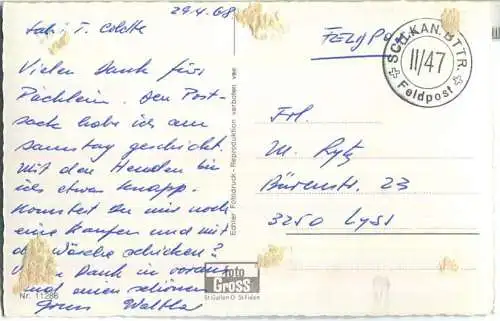 29.4.68
Vielen Dank fürs
Päcklein. Den Post-
sack habe ich am
Samstag geschickt.
Mit den Hemden bin
ich etwas knapp.
Könntest Du mir noch
eine kaufen und mit
der Wäsche schicken?
Dank im voraus
und einen schönen
Gruss Walther
Nr. 11286
Echter Fotodruck - Reproduktion verboten
foto
GROSS
St.Gallen O St.Fiden
Feldpost
SCH.KAN.BTTR.
II/47
Feldpost
Frl.
M. Rytz
Bürenstr. 23
3250 Lyss